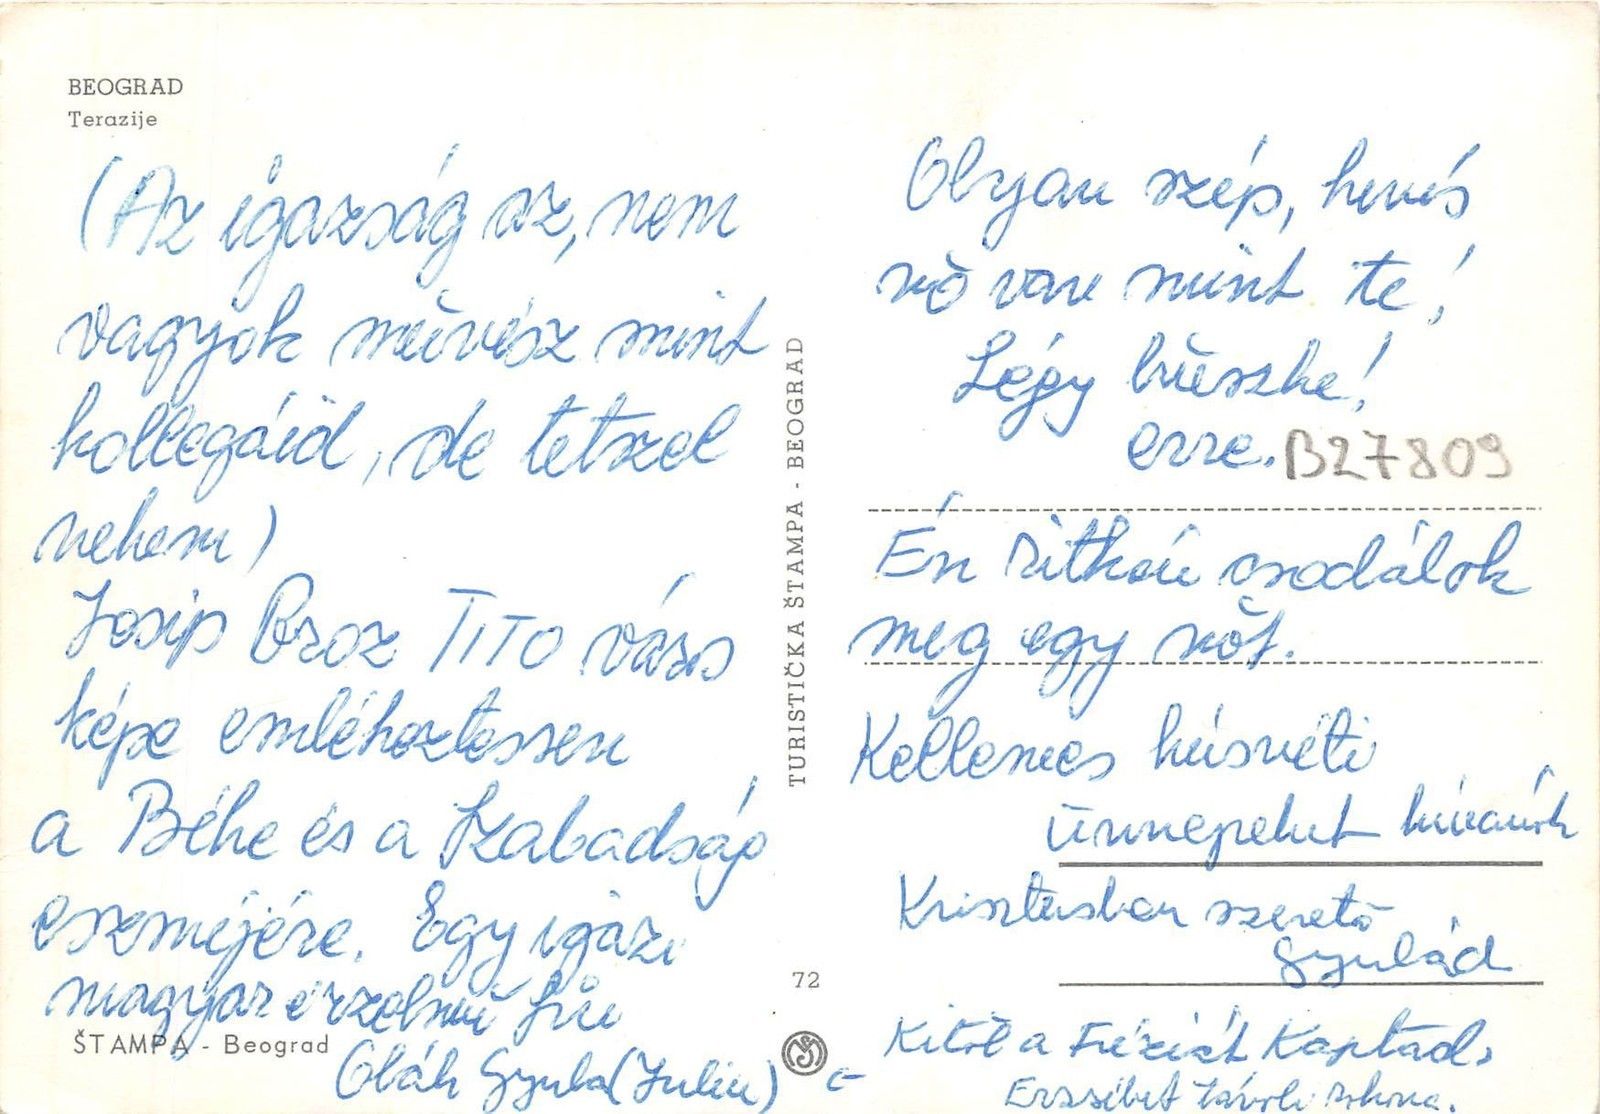 BEOGRAD
Terazije
(Az igazság az, nem
vagyok művész mint
kollegáid, de tetszel
nekem)
Josip Broz TITO város
képe emlékeztessen
a Béke és a Szabadság
eszméjére. Egy igazi
magyar érzelmű fiu
Oláh Gyula (Juliu)
ŠTAMPA - Beograd
TURISTIČKA ŠTAMPA - BEOGRAD
72
Olyan szép, kevés
nő van mint te!
Légy büszke!
erre. B27809
Én ritkán csodálok
meg egy nőt.
Kellemes húsvéti
ünnepeket kivánok
Krisztusban szerető
Gyulád
Kitől a Fréziát Kaptad.
Erzsébet távoli rokona.